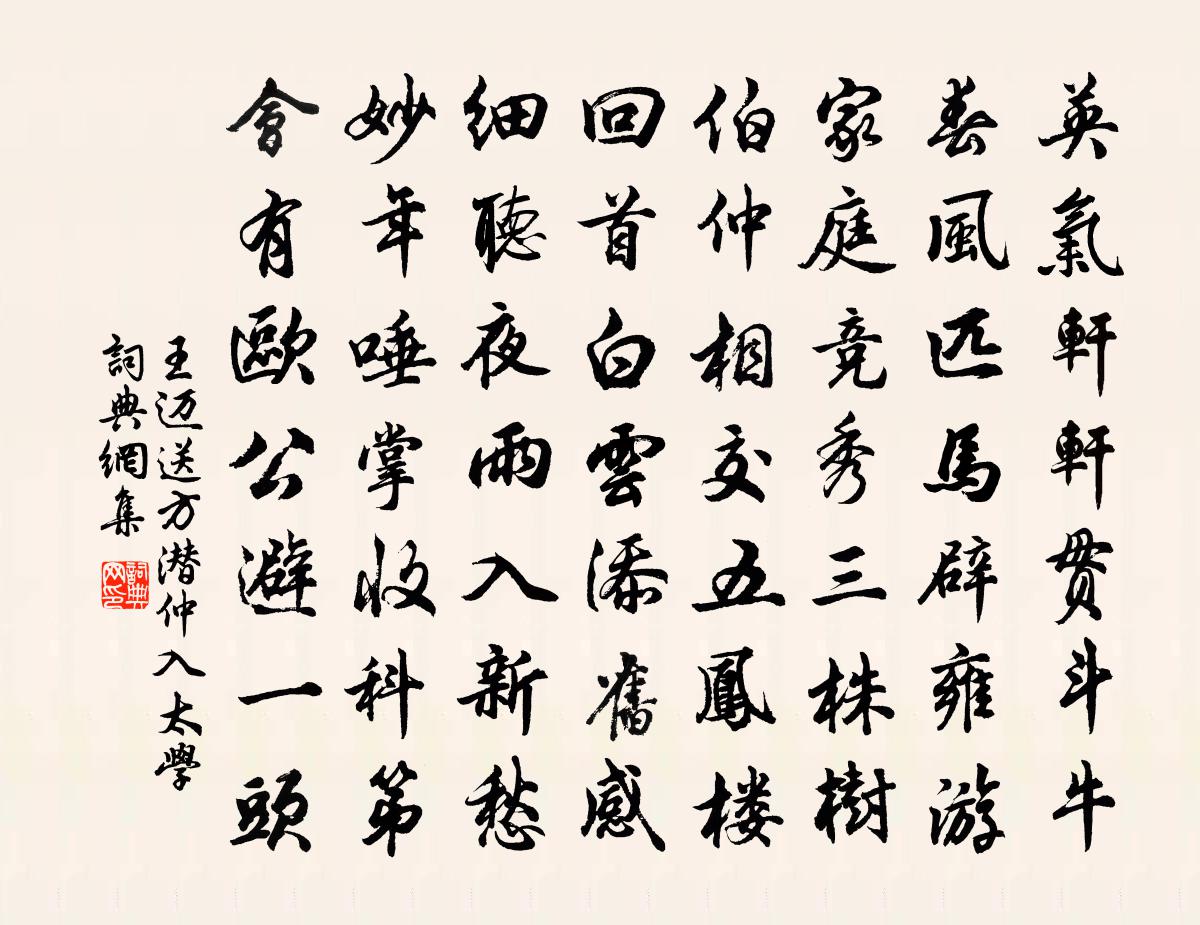 英氣軒軒貫斗牛
春風匹馬辟雍游
家庭競秀三株樹
伯仲相交五鳳楼
回首白雲添舊感
細聽夜雨入新愁
妙年唾掌收科第
會有歐公避一頭
王迈送方潜仲入太學
詞典網集
詞典网印